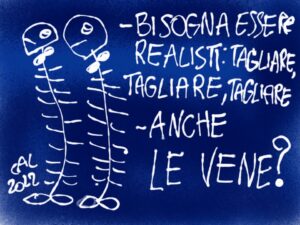 -BISOGNA ESSERE
REALISTI: TAGLIARE,
TAGLIARE, TAGLIARE
-ANCHE
LE VENE?
CAL
2022